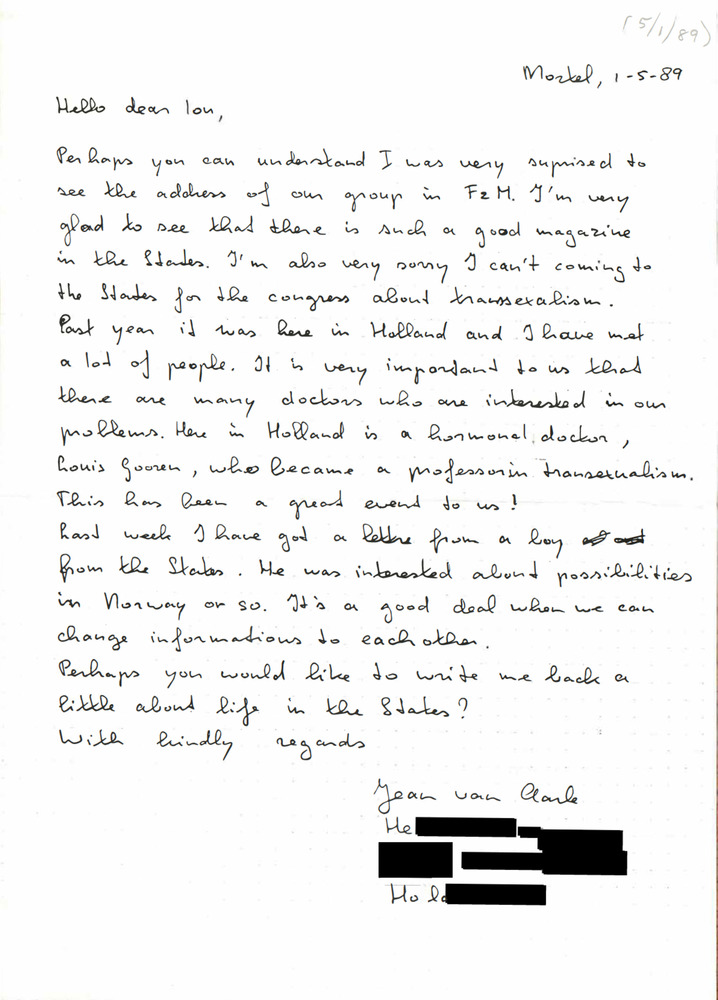 (5/1/89)
Mortel, 1-5-89
Hello dear Lou,
Perhaps you can understand I was very suprised to
see the address of our group in F2M. I'm very
glad to see that there is such a good magazine
in the States. I'm also very sorry I can't coming to
the States for the congress about transsexalism.
Past year it was here in Holland and I have met
a lot of people. It is very important to us that
there are many doctors who are interested in our
problems. Here in Holland is a hormonal doctor,
Louis Gooren, who became a professor in transexualism.
This has been a great event to us!
Last week I have got a lettre from a boy
from the States. He was interested about possibilities
in Norway or so. It's a good deal when we can
change informations to each other.
Perhaps you would like to write me back a
little about life in the States?
With kindly regards
Jean van
He
Hol